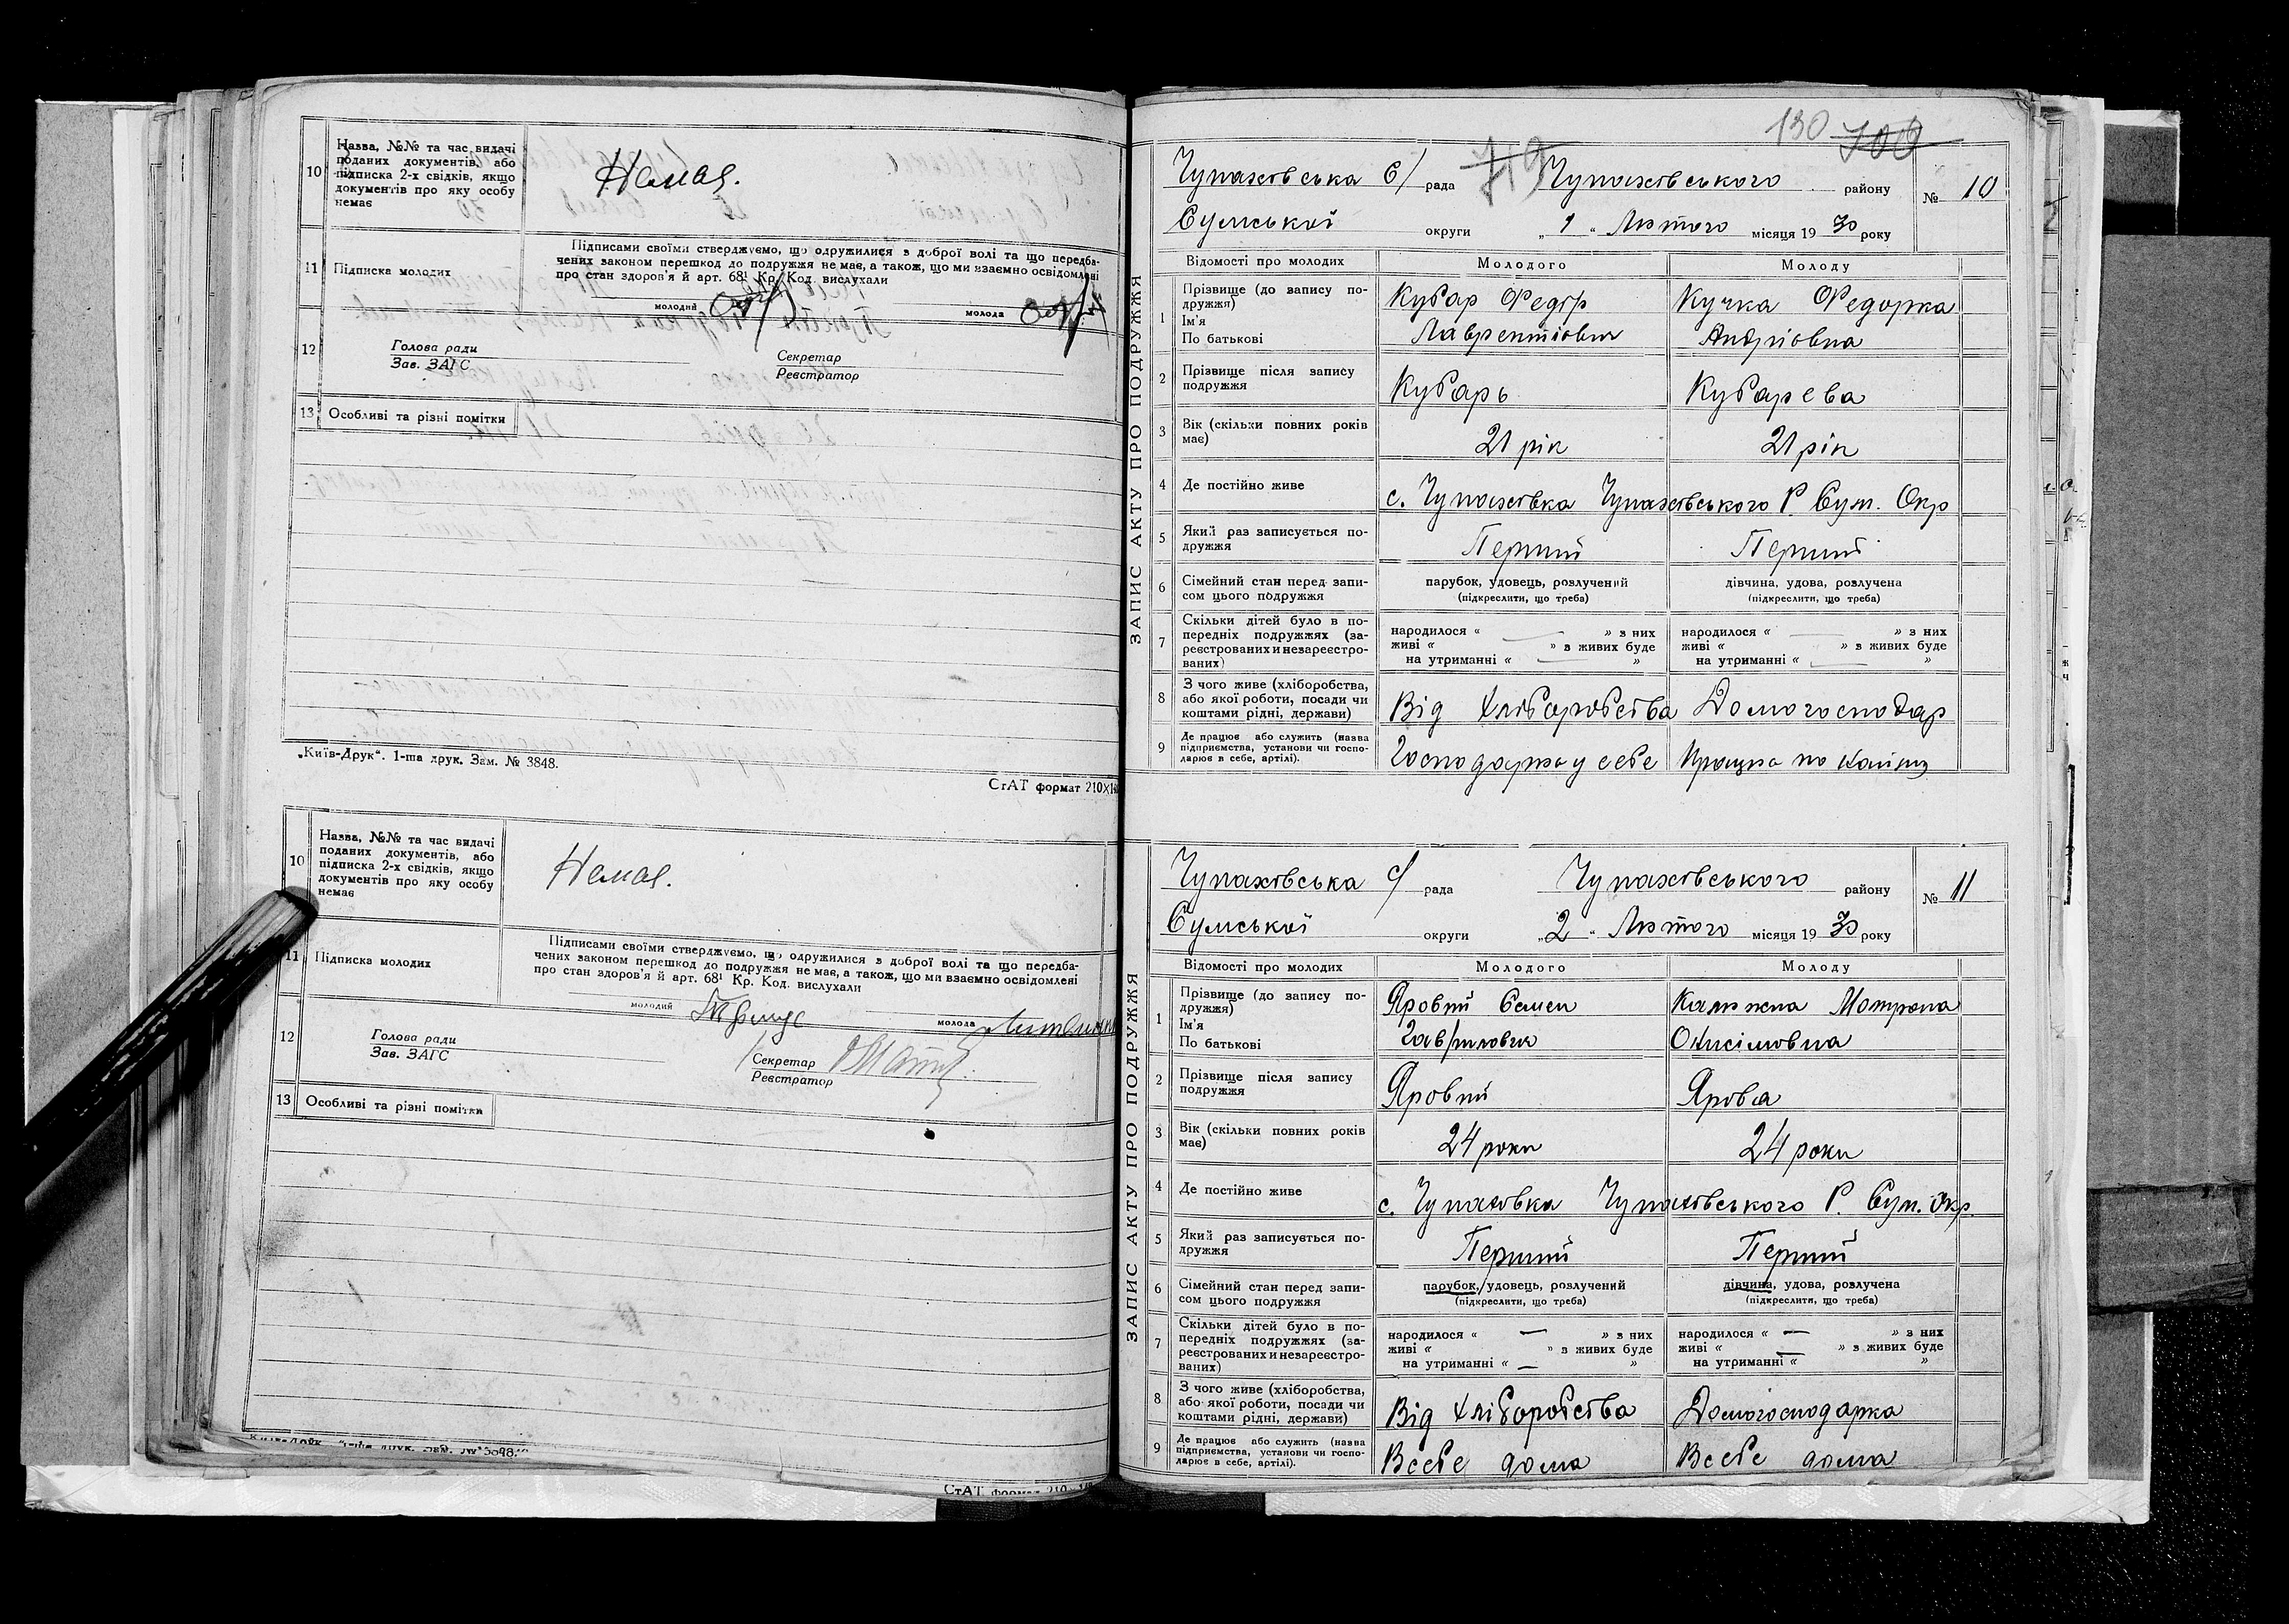 10
Назва, №№ та час видачі
поданих документів, або
підписка 2-х свідків, якщо
документів про яку особу
немає
Немає.
11
Підписка молодих
Підписами своїми стверджуємо, що одружилися з доброї волі та що передба-
чених законом перешкод до подружжя немає, а також, що ми взаємно освідомлені
про стан здоров'я й арт. 68¹ Кр. Код. вислухали
молодий
молода
12
Голова ради
Зав. ЗАГС
Секретар
Реєстратор
13
Особливі та різні помітки
„Київ-Друк“. 1-ша друк. Зам. № 3848.
СтАТ формат 210×14
10
Назва, №№ та час видачі
поданих документів, або
підписка 2-х свідків, якщо
документів про яку особу
немає
Немає.
11
Підписка молодих
Підписами своїми стверджуємо, що одружилися з доброї волі та що передба-
чених законом перешкод до подружжя немає, а також, що ми взаємно освідомлені
про стан здоров'я й арт. 68¹ Кр. Код. вислухали
молодий
молода
12
Голова ради
Зав. ЗАГС
Секретар
Реєстратор
13
Особливі та різні помітки
СтАТ формат 210
130 700
719
ЗАПИС АКТУ ПРО ПОДРУЖЖЯ
Чупахівська С/ рада Чупахівського району № 10
Сумської округи „1“ Лютого місяця 1930 року
Відомості про молодих Молодого Молоду
1 Прізвище (до запису по-
дружжя)
Ім'я
По батькові
Кубар Федір
Лаврентіович
Кучка Федорка
Андріовна
2 Прізвище після запису
подружжя
Кубарь Кубарева
3 Вік (скільки повних років
має)
21 рік 21 рік
4 Де постійно живе
с. Чупахівка Чупахівського Р. Сум. Окр
5 Який раз записується по-
дружжя
Перший Перший
6 Сімейний стан перед запи-
сом цього подружжя
парубок, удовець, розлучений
(підкреслити, що треба)
дівчина, удова, розлучена
(підкреслити, що треба)
7 Скільки дітей було в по-
передніх подружжях (за-
реєстрованих и незареєстро-
ваних)
народилося « — » з них
живі « » з живих буде
на утриманні « — »
народилося « — » з них
живі « » з живих буде
на утриманні « — »
8 З чого живе (хліборобства,
або якої роботи, посади чи
коштами рідні, держави)
Від хліборобства Домогосподар
9 Де працює або служить (назва
підприємства, установи чи госпо-
дарює в себе, артілі).
у себе по
ЗАПИС АКТУ ПРО ПОДРУЖЖЯ
Чупахівська С/ рада Чупахівського району № 11
Сумської округи „2“ Лютого місяця 1930 року
Відомості про молодих Молодого Молоду
1 Прізвище (до запису по-
дружжя)
Ім'я
По батькові
Яровий Семен
Мотрона
Онисімовна
2 Прізвище після запису
подружжя
Яровий Ярова
3 Вік (скільки повних років
має)
24 роки 24 роки
4 Де постійно живе
с. Чупахівка Чупахівського Р. Сум. Окр.
5 Який раз записується по-
дружжя
Перший Перший
6 Сімейний стан перед запи-
сом цього подружжя
парубок, удовець, розлучений
(підкреслити, що треба)
дівчина, удова, розлучена
(підкреслити, що треба)
7 Скільки дітей було в по-
передніх подружжях (за-
реєстрованих и незареєстро-
ваних)
народилося « — » з них
живі « » з живих буде
на утриманні « — »
народилося « — » з них
живі « — » з живих буде
на утриманні « »
8 З чого живе (хліборобства,
або якої роботи, посади чи
коштами рідні, держави)
Від хліборобства Домогосподарка
9 Де працює або служить (назва
підприємства, установи чи госпо-
дарює в себе, артілі).
Всебе дома Всебе дома